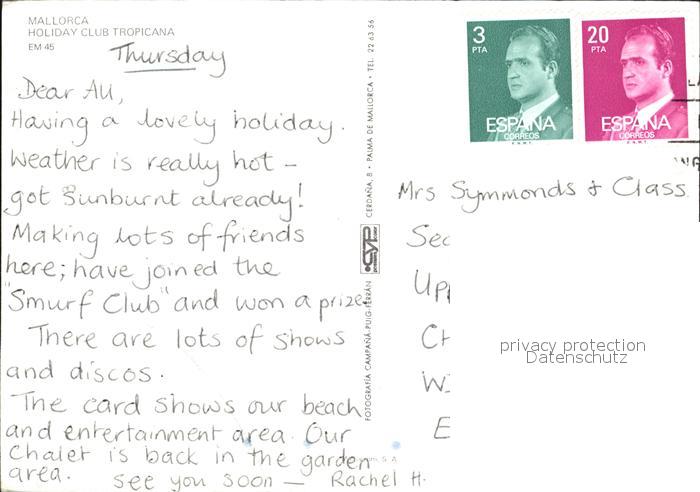 MALLORCA
HOLIDAY CLUB TROPICANA
EM 45
Thursday
Dear All,
Having a lovely holiday.
Weather is really hot -
got Sunburnt already!
Making lots of friends
here; have joined the
"Smurf Club" and won a prize.
There are lots of shows
and discos.
The card shows our beach
and entertainment area. Our
Chalet is back in the garden
area.
See you soon — Rachel H.
FOTOGRAFÍA CAMPAÑÁ-PUIG-FERRÁN
CYP
CERDAÑA, 8 • PALMA DE MALLORCA • TEL. 22 63 56
S. A.
3
PTA
ESPAÑA
CORREOS
20
PTA
ESPAÑA
CORREOS
Mrs Symmonds & Class
privacy protection
Datenschutz